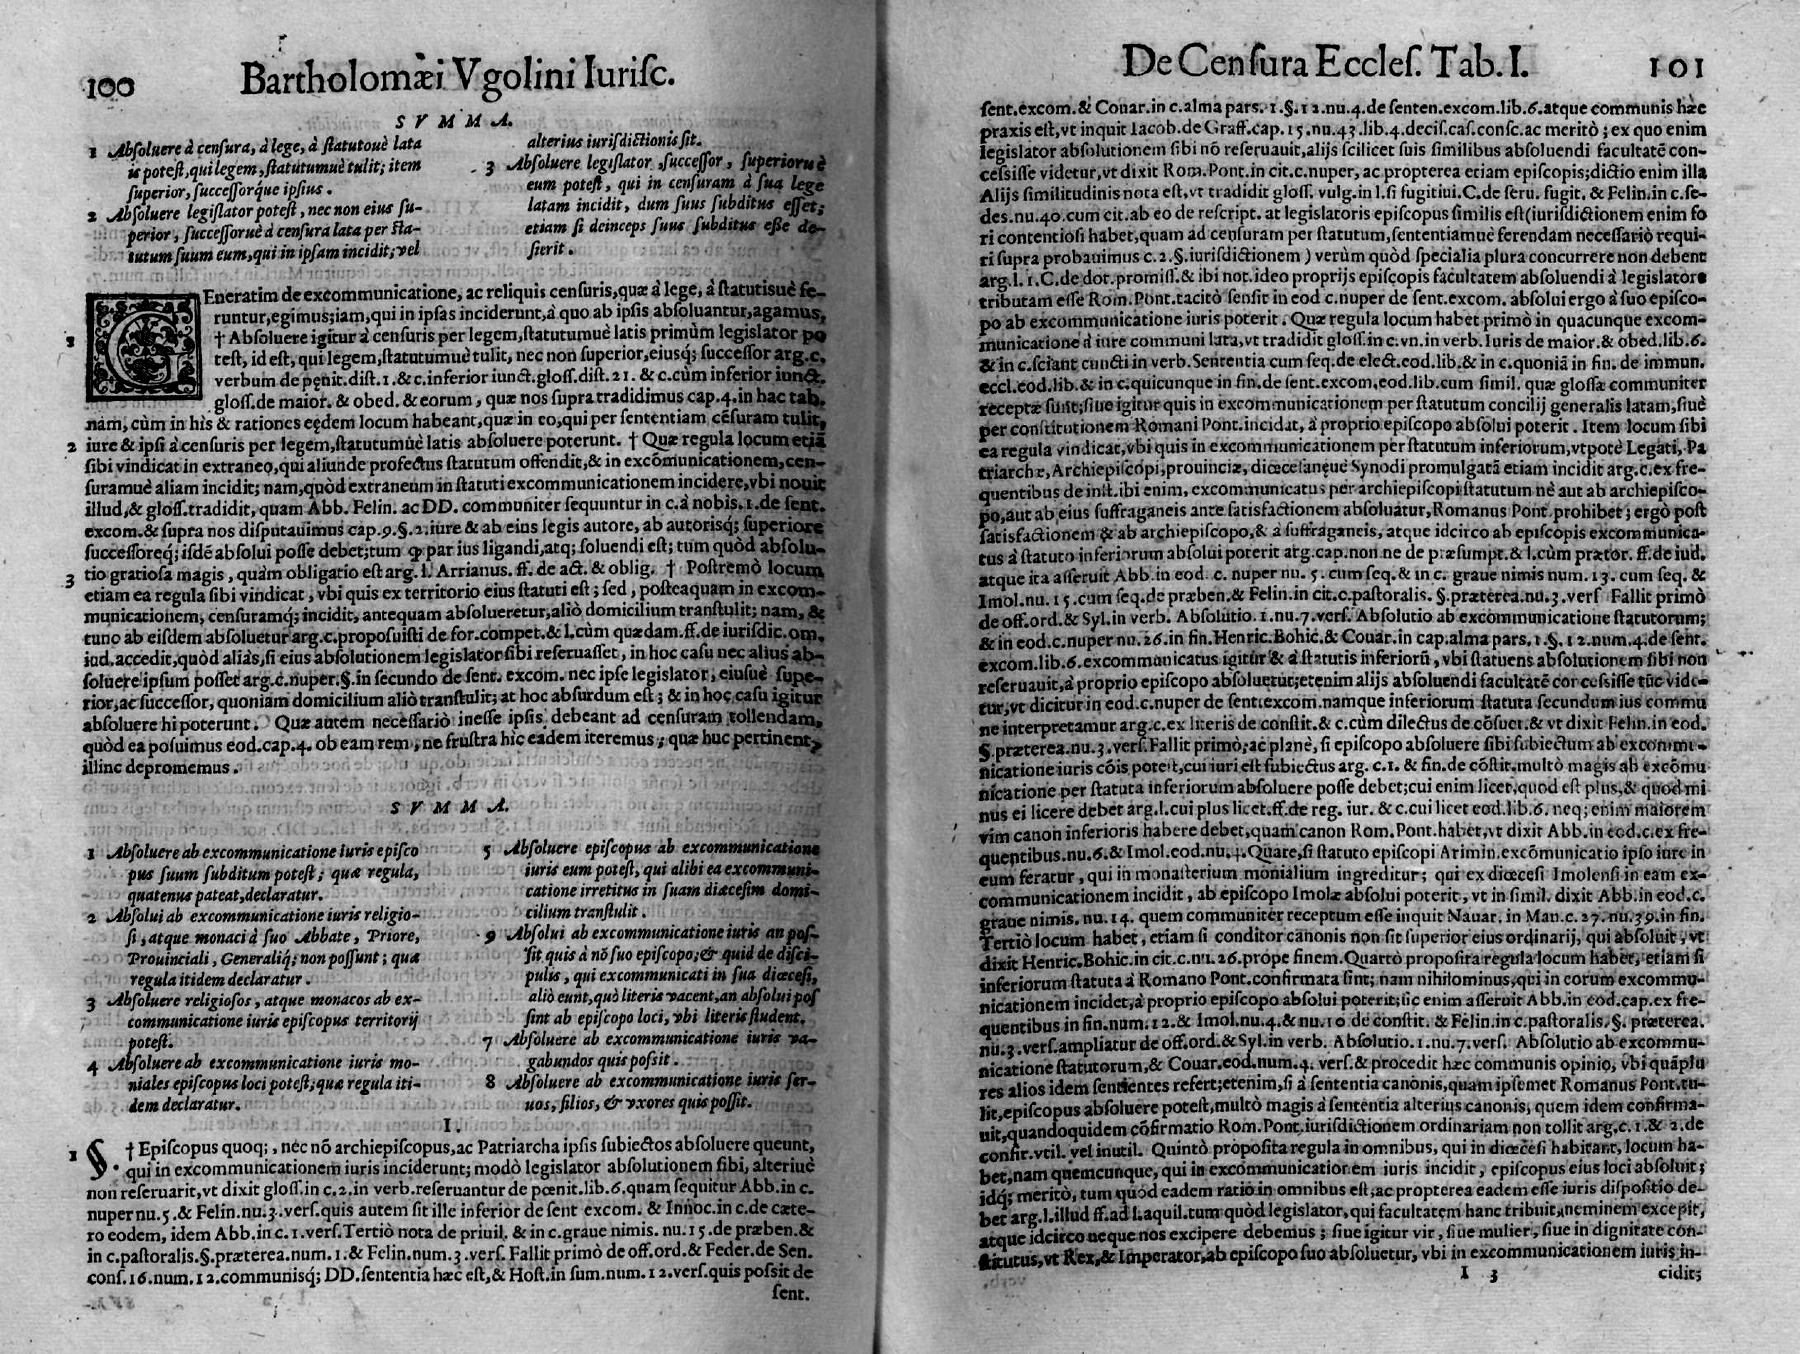 100 Bartholomæi Vgolini Iurisc.
SVMMA.
1 Absoluere à censura, à lege, à statutouè lata
is potest, qui legem, statutumuè tulit; item
superior, successorq́ue ipsius.
2 Absoluere legislator potest, nec non eius su-
perior, successoruè à censura lata per sta-
tutum suum eum, qui in ipsam incidit; vel
alterius iurisdictionis sit.
3 Absoluere legislator, successor, superioruè
eum potest, qui in censuram à sua lege
latam incidit, dum suus subditus esset;
etiam si deinceps suus subditus eße de-
sierit.
GEneratim de excommunicatione, ac reliquis censuris, quæ à lege, à statutisuè fe-
runtur, egimus; iam, qui in ipsas inciderunt, à quo ab ipsis absoluantur, agamus,
1 † Absoluere igitur à censuris per legem, statutumuè latis primùm legislator po
test, id est, qui legem, statutumuè tulit, nec non superior, eiusq; successor arg.c.
verbum de pęnit.dist.1.& c.inferior iunct.gloss.dist.21. & c.cùm inferior iunct.
gloss.de maior. & obed. & eorum, quæ nos supra tradidimus cap.4.in hac tab.
nam, cùm in his & rationes eędem locum habeant, quæ in eo, qui per sententiam cẽsuram tulit,
2 iure & ipsi à censuris per legem, statutumuè latis absoluere poterunt. † Quæ regula locum etiã
sibi vindicat in extraneo, qui aliunde profectus statutum offendit, & in excõmunicationem, cen-
suramuè aliam incidit; nam, quòd extraneum in statuti excommunicationem incidere, vbi nouit
illud, & gloss.tradidit, quam Abb. Felin. ac DD. communiter sequuntur in c.à nobis.1.de sent.
excom.& supra nos disputauimus cap.9.§.2.iure & ab eius legis autore, ab autorisq́; superiore
successoreq́; isdẽ absolui posse debet; tum ꝙ par ius ligandi, atq; soluendi est; tum quòd absolu-
tio gratiosa magis, quàm obligatio est arg.l. Arrianus.ff. de act.& oblig. † Postremò locum
3 etiam ea regula sibi vindicat, vbi quis ex territorio eius statuti est; sed, posteaquam in excom-
municationem, censuramq́; incidit, antequam absolueretur, aliò domicilium transtulit; nam, &
tunc ab eisdem absoluetur arg.c.proposuisti de for.compet.& l.cùm quædam.ff.de iurisdic.om.
iud.accedit, quòd aliàs, si eius absolutionem legislator sibi reseruasset, in hoc casu nec alius ab-
soluere ipsum posset arg.c.nuper.§.in secundo de sent. excom. nec ipse legislator, eiusuè supe-
rior, ac successor, quoniam domicilium aliò transtulit; at hoc absurdum est; & in hoc casu igitur
absoluere hi poterunt. Quæ autem necessariò inesse ipsis debeant ad censuram tollendam,
quòd ea posuimus eod.cap.4. ob eam rem, ne frustra hic eadem iteremus; quæ huc pertinent,
illinc depromemus.
SVMMA.
1 Absoluere ab excommunicatione iuris episco
pus suum subditum potest; quæ regula,
quatenus pateat, declaratur.
2 Absolui ab excommunicatione iuris religio-
si, atque monaci à suo Abbate, Priore,
Prouinciali, Generaliq́; non possunt; quæ
regula itidem declaratur.
3 Absoluere religiosos, atque monacos ab ex-
communicatione iuris episcopus territorij
potest.
4 Absoluere ab excommunicatione iuris mo-
niales episcopus loci potest; quæ regula iti-
dem declaratur.
5 Absoluere episcopus ab excommunicatione
iuris eum potest, qui alibi ea excommuni-
catione irretitus in suam diœcesim domi-
cilium transtulit.
9 Absolui ab excommunicatione iuris an pos-
sit quis à nõ suo episcopo; & quid de disci-
pulis, qui excommunicati in sua diœcesi,
aliò eunt, quò literis vacent, an absolui pos
sint ab episcopo loci, vbi literis student.
7 Absoluere ab excommunicatione iuris va-
gabundos quis possit.
8 Absoluere ab excommunicatione iuris ser-
uos, filios, & vxores quis possit.
I.
1 §. † Episcopus quoq;, nec nõ archiepiscopus, ac Patriarcha ipsis subiectos absoluere queunt,
qui in excommunicationem iuris inciderunt; modò legislator absolutionem sibi, alteriuè
non reseruarit, vt dixit gloss.in c.2.in verb.reseruantur de pœnit.lib.6.quam sequitur Abb.in c.
nuper nu.5.& Felin.nu.3.vers.quis autem sit ille inferior de sent excom. & Innoc.in c.de cæte-
ro eodem, idem Abb.in c.1.vers.Tertiò nota de priuil. & in c.graue nimis. nu.15.de præben.&
in c.pastoralis.§.præterea.num.1.& Felin.num.3.vers. Fallit primò de off.ord.& Feder.de Sen.
cons.16.num.12.communisq́; DD.sententia hæc est, & Host.in sum.num.12.vers.quis possit de
sent.
De Censura Eccles. Tab. I. 101
sent.excom.& Couar.in c.alma pars.1.§.12.nu.4.de senten.excom.lib.6.atque communis hæc
praxis est, vt inquit Iacob.de Graff.cap.15.nu.43.lib.4.decis.cas.consc.ac meritò; ex quo enim
legislator absolutionem sibi nõ reseruauit, alijs scilicet suis similibus absoluendi facultatẽ con-
cessisse videtur, vt dixit Rom.Pont.in cit.c.nuper, ac propterea etiam episcopis; dictio enim illa
Alijs similitudinis nota est, vt tradidit gloss. vulg.in l.si fugitiui.C.de seru. fugit, & Felin.in c.se-
des.nu.40.cum cit.ab eo de rescript. at legislatoris episcopus similis est (iurisdictionem enim fo
ri contentiosi habet, quam ad censuram per statutum, sententiamuè ferendam necessariò requi-
ri supra probauimus c.2.§.iurisdictionem) verùm quòd specialia plura concurrere non debent
arg.l.1.C.de dot.promiss.& ibi not.ideo proprijs episcopis facultatem absoluendi à legislatore
tributam esse Rom. Pont.tacitò sensit in eod c.nuper de sent.excom. absolui ergo à suo episco-
po ab excommunicatione iuris poterit. Quæ regula locum habet primò in quacunque excom-
municatione à iure communi lata, vt tradidit gloss.in c.vn.in verb. Iuris de maior.& obed.lib.6.
& in c.sciant cuncti in verb. Sententia cum seq.de elect.eod.lib.& in c.quoniã in fin. de immun.
eccl.eod.lib.& in c.quicunque in fin.de sent.excom.eod.lib.cum simil. quæ glossæ communiter
receptæ sunt; siue igitur quis in excommunicationem per statutum concilij generalis latam, siuè
per constitutionem Romani Pont.incidat, à proprio episcopo absolui poterit. Item locum sibi
ea regula vindicat, vbi quis in excommunicationem per statutum inferiorum, vtpotè Legati, Pa
triarchæ, Archiepiscopi, prouinciæ, diœcesanęuè Synodi promulgatã etiam incidit arg.c.ex fre-
quentibus de inst.ibi enim, excommunicatus per archiepiscopi statutum nè aut ab archiepisco-
po, aut ab eius suffraganeis ante satisfactionem absoluatur, Romanus Pont.prohibet; ergò post
satisfactionem & ab archiepiscopo, & à suffraganeis, atque idcirco ab episcopis excommunica-
tus à statuto inferiorum absolui poterit arg.cap.non ne de præsumpt.& l.cùm prætor. ff.de iud.
atque ita asseruit Abb.in eod. c. nuper nu. 5. cum seq.& in c. graue nimis num.13. cum seq. &
Imol.nu.15.cum seq.de præben.& Felin.in cit.c.pastoralis. §.præterea.nu.3.vers Fallit primò
de off.ord.& Syl.in verb. Absolutio.1.nu.7.vers. Absolutio ab excommunicatione statutorum;
& in eod.c.nuper nu.26.in fin.Henric.Bohic.& Couar.in cap.alma pars.1.§.12.num.4.de sent.
excom.lib.6.excommunicatus igitur & à statutis inferiorũ, vbi statuens absolutionem sibi non
reseruauit, à proprio episcopo absoluetur; etenim alijs absoluendi facultatẽ concessisse tũc vide-
tur, vt dicitur in eod.c.nuper de sent.excom.namque inferiorum statuta secundum ius commu
ne interpretamur arg.c.ex literis de constit.& c.cùm dilectus de cõsuet.& vt dixit Felin.in eod.
§.præterea.nu.3.vers.Fallit primò; ac planè, si episcopo absoluere sibi subiectum ab excommu-
nicatione iuris cõis potest, cui iuri est subiectus arg. c.1. & fin.de cõstit.multò magis ab excõmu
nicatione per statuta inferiorum absoluere posse debet; cui enim licet, quod est plus, & quod mi
nus ei licere debet arg.l.cui plus licet.ff.de reg. iur. & c.cui licet eod.lib.6. neq; enim maiorem
vim canon inferioris habere debet, quam canon Rom. Pont.habet, vt dixit Abb.in eod.c.ex fre-
quentibus.nu.6.& Imol.eod.nu.4.Quare, si statuto episcopi Arimin.excõmunicatio ipso iure in
eum feratur, qui in monasterium monialium ingreditur; qui ex diœcesi Imolensi in eam ex-
communicationem incidit, ab episcopo Imolæ absolui poterit, vt in simil. dixit Abb.in eod.c.
graue nimis. nu.14. quem communiter receptum esse inquit Nauar. in Man.c.27.nu.39.in fin.
Tertiò locum habet, etiam si conditor canonis non sit superior eius ordinarij, qui absoluit, vt
dixit Henric.Bohic.in cit.c.nu.26.prope finem.Quartò proposita regula locum habet, etiam si
inferiorum statuta à Romano Pont.confirmata sint; nam nihilominus, qui in eorum excommu-
nicationem incidet, à proprio episcopo absolui poterit; sic enim asseruit Abb.in eod.cap.ex fre-
quentibus in fin.num.12.& Imol.nu.4.& nu.10 de constit. & Felin.in c.pastoralis.§. præterea.
nu.3.vers.ampliatur de off.ord.& Syl.in verb. Absolutio.1.nu.7.vers. Absolutio ab excommu-
nicatione statutorum, & Couar.eod.num.4. vers.& procedit hæc communis opinio, vbi quãplu
res alios idem sentientes refert; etenim, si à sententia canonis, quam ipsemet Romanus Pont.tu-
lit, episcopus absoluere potest, multò magis à sententia alterius canonis, quem idem confirma-
uit, quandoquidem cõfirmatio Rom.Pont.iurisdictionem ordinariam non tollit arg.c.1.& 2.de
confir.vtil. vel inutil. Quintò proposita regula in omnibus, qui in diœcesi habitant, locum ha-
bet, nam quemcunque, qui in excommunicationem iuris incidit, episcopus eius loci absoluit;
idq́; meritò, tum quòd eadem ratio in omnibus est, ac propterea eadem esse iuris dispositio de-
bet arg.l.illud ff.ad l.aquil.tum quòd legislator, qui facultatem hanc tribuit, neminem excepit,
atque idcirco neque nos excipere debemus; siue igitur vir, siue mulier, siue in dignitate con-
stitutus, vt Rex, & Imperator, ab episcopo suo absoluetur, vbi in excommunicationem iuris in-
I 3 cidit;